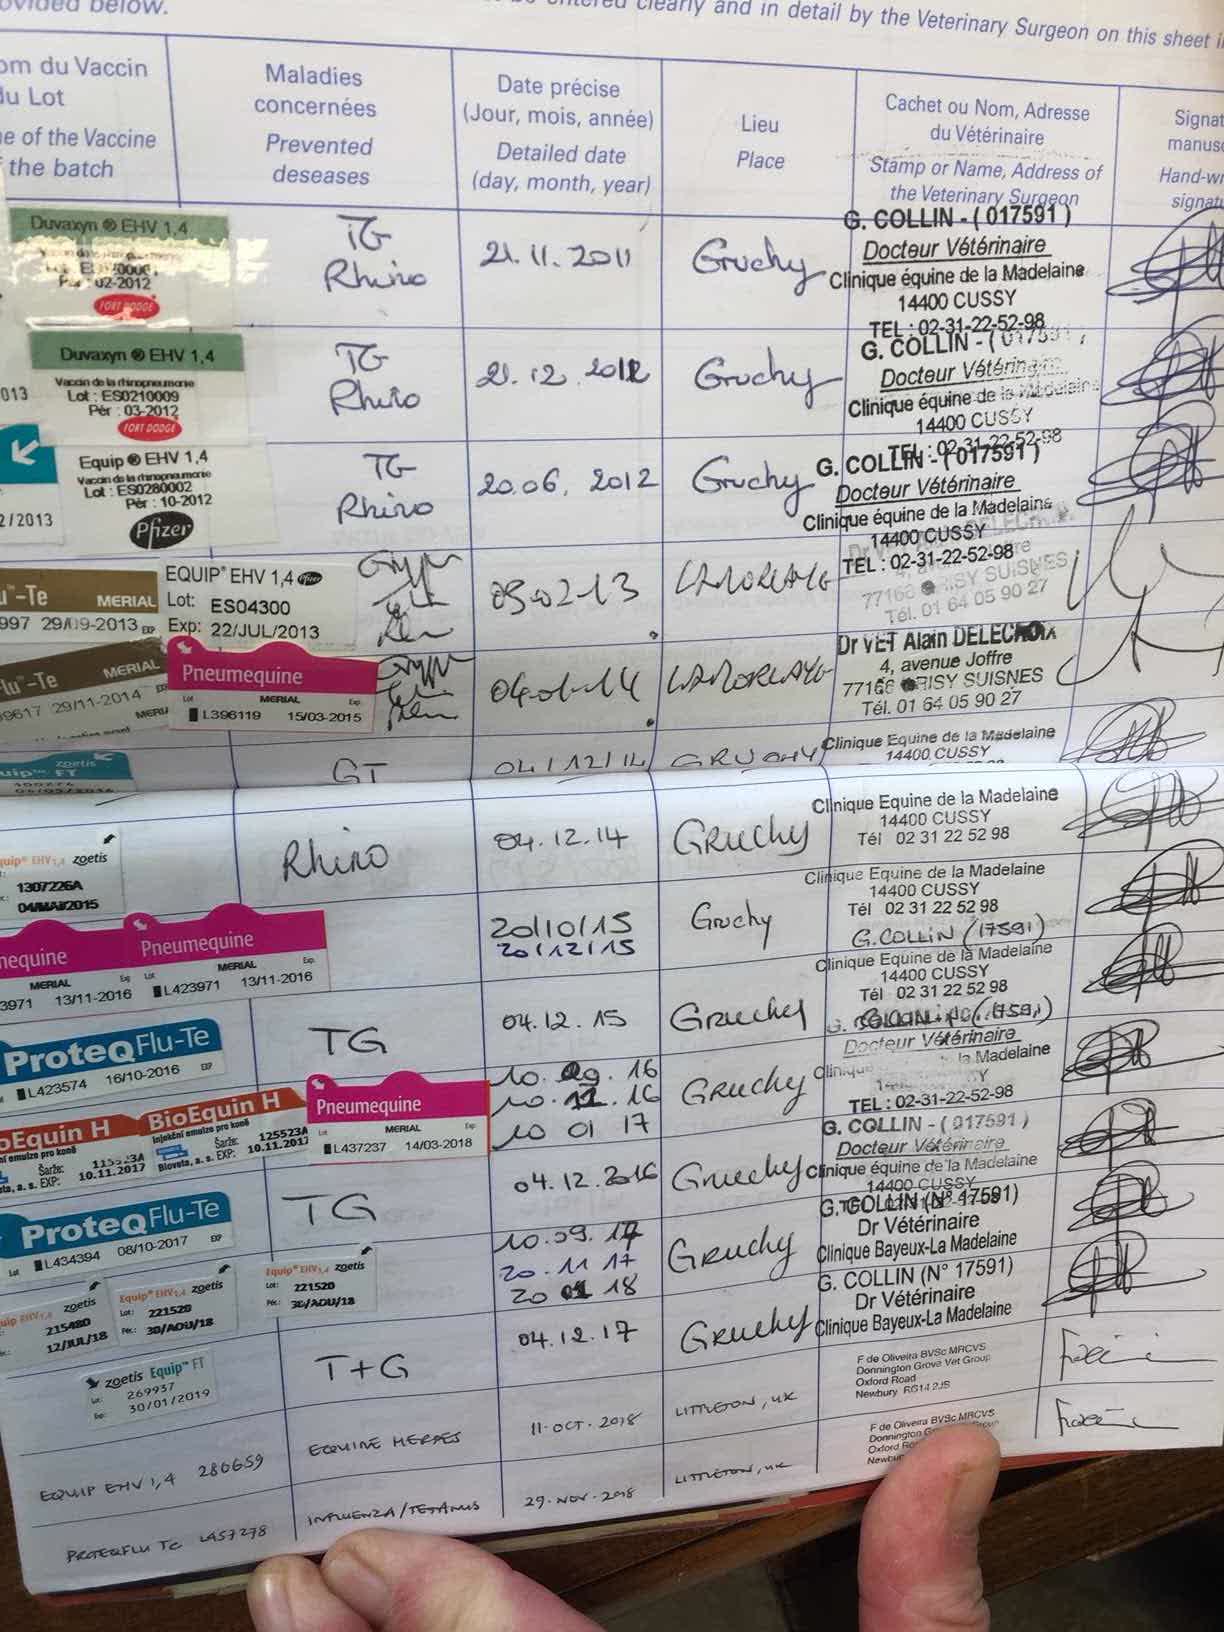 ovided below.
entered clearly and in detail by the Veterinary Surgeon on this sheet
om du Vaccin
du Lot
e of the Vaccine
the batch
Maladies
concernées
Prevented
deseases
Date précise
(Jour, mois, année)
Detailed date
(day, month, year)
Lieu
Place
Cachet ou Nom, Adresse
du Vétérinaire
Stamp or Name, Address of
the Veterinary Surgeon
Signat
manus
Hand-wr
signatu
Duvaxyn ® EHV 1,4
Pér : 02-2012
FORT DODGE
TG
Rhino
21.11.2011
Gruchy
G. COLLIN - ( 017591 )
Docteur Vétérinaire
Clinique équine de la Madelaine
14400 CUSSY
TEL : 02-31-22-52-98
013
Duvaxyn ® EHV 1,4
Vaccin de la rhinopneumonie
Lot : ES0210009
Pér : 03-2012
FORT DODGE
TG
Rhino
21.12.2012
Gruchy
G. COLLIN - ( 017591 )
Docteur Vétérinaire
Clinique équine de la Madelaine
14400 CUSSY
TEL : 02-31-22-52-98
2/2013
Equip ® EHV 1,4
Vaccin de la rhinopneumonie
Lot : ES0280002
Pér : 10-2012
Pfizer
TG
Rhino
20.06.2012
Gruchy
G. COLLIN - ( 017591 )
Docteur Vétérinaire
Clinique équine de la Madelaine
14400 CUSSY
TEL : 02-31-22-52-98
u™-Te MERIAL
997 29/09-2013 EXP
EQUIP® EHV 1,4 Pfizer
Lot: ES04300
Exp: 22/JUL/2013
LAMORLAYE
77166 GRISY SUISNES
Tél. 01 64 05 90 27
lu™-Te MERIAL
9617 29/11-2014
Pneumequine
MERIAL
L396119 15/03-2015
04-01-14
LAMORLAYE
Dr VET Alain DELECROIX
4, avenue Joffre
77166 GRISY SUISNES
Tél. 01 64 05 90 27
zoetis
uip™ FT
GT
04/12/14
GRUCHY
Clinique Equine de la Madelaine
14400 CUSSY
quip® EHV 1,4 zoetis
1307226A
04/MAI/2015
Rhino
04.12.14
Gruchy
Clinique Equine de la Madelaine
14400 CUSSY
Tél 02 31 22 52 98
nequine
MERIAL
3971 13/11-2016
Pneumequine
MERIAL
L423971 13/11-2016
20/10/15
20/12/15
Gruchy
Clinique Equine de la Madelaine
14400 CUSSY
Tél 02 31 22 52 98
G.COLLIN (17591)
ProteqFlu-Te
L423574 16/10-2016 EXP
TG
04.12.15
Gruchy
Clinique Equine de la Madelaine
14400 CUSSY
Tél 02 31 22 52 98
oEquin H
Injekční emulze pro koně
Šarže:
Bioveta, a. s. EXP: 10.11.2017
BioEquin H
Injekční emulze pro koně
Šarže: 125523A
Bioveta, a. s. EXP: 10.11.2017
Pneumequine
MERIAL
L437237 14/03-2018
10.09.16
10.11.16
10 01 17
Gruchy
Docteur Vétérinaire
TEL : 02-31-22-52-98
ProteqFlu-Te
L434394 08/10-2017 EXP
TG
04.12.2016
Gruchy
G. COLLIN - ( 017591 )
Docteur Vétérinaire
Clinique équine de la Madelaine
14400 CUSSY
EHV 1,4 zoetis
215480
12/JUL/18
Equip® EHV 1,4 zoetis
Lot: 221520
Pér.: 30/AOU/18
Equip® EHV 1,4 zoetis
Lot: 221520
Pér.: 30/AOU/18
10.09.17
20 11 17
20 01 18
Gruchy
G. COLLIN (N° 17591)
Dr Vétérinaire
Clinique Bayeux-La Madelaine
zoetis Equip™ FT
Lot: 269937
Exp: 30/01/2019
T+G
04.12.17
Gruchy
G. COLLIN (N° 17591)
Dr Vétérinaire
Clinique Bayeux-La Madelaine
EQUIP EHV 1,4 280659
EQUINE HERPES
11-OCT-2018
LITTLETON, UK
F de Oliveira BVSc MRCVS
Donnington Grove Vet Group
Oxford Road
Newbury RG14 2JB
PROTEQFLU TE L457278
INFLUENZA/TETANUS
29-NOV-2018
LITTLETON, UK
F de Oliveira BVSc MRCVS
Donnington
Oxford